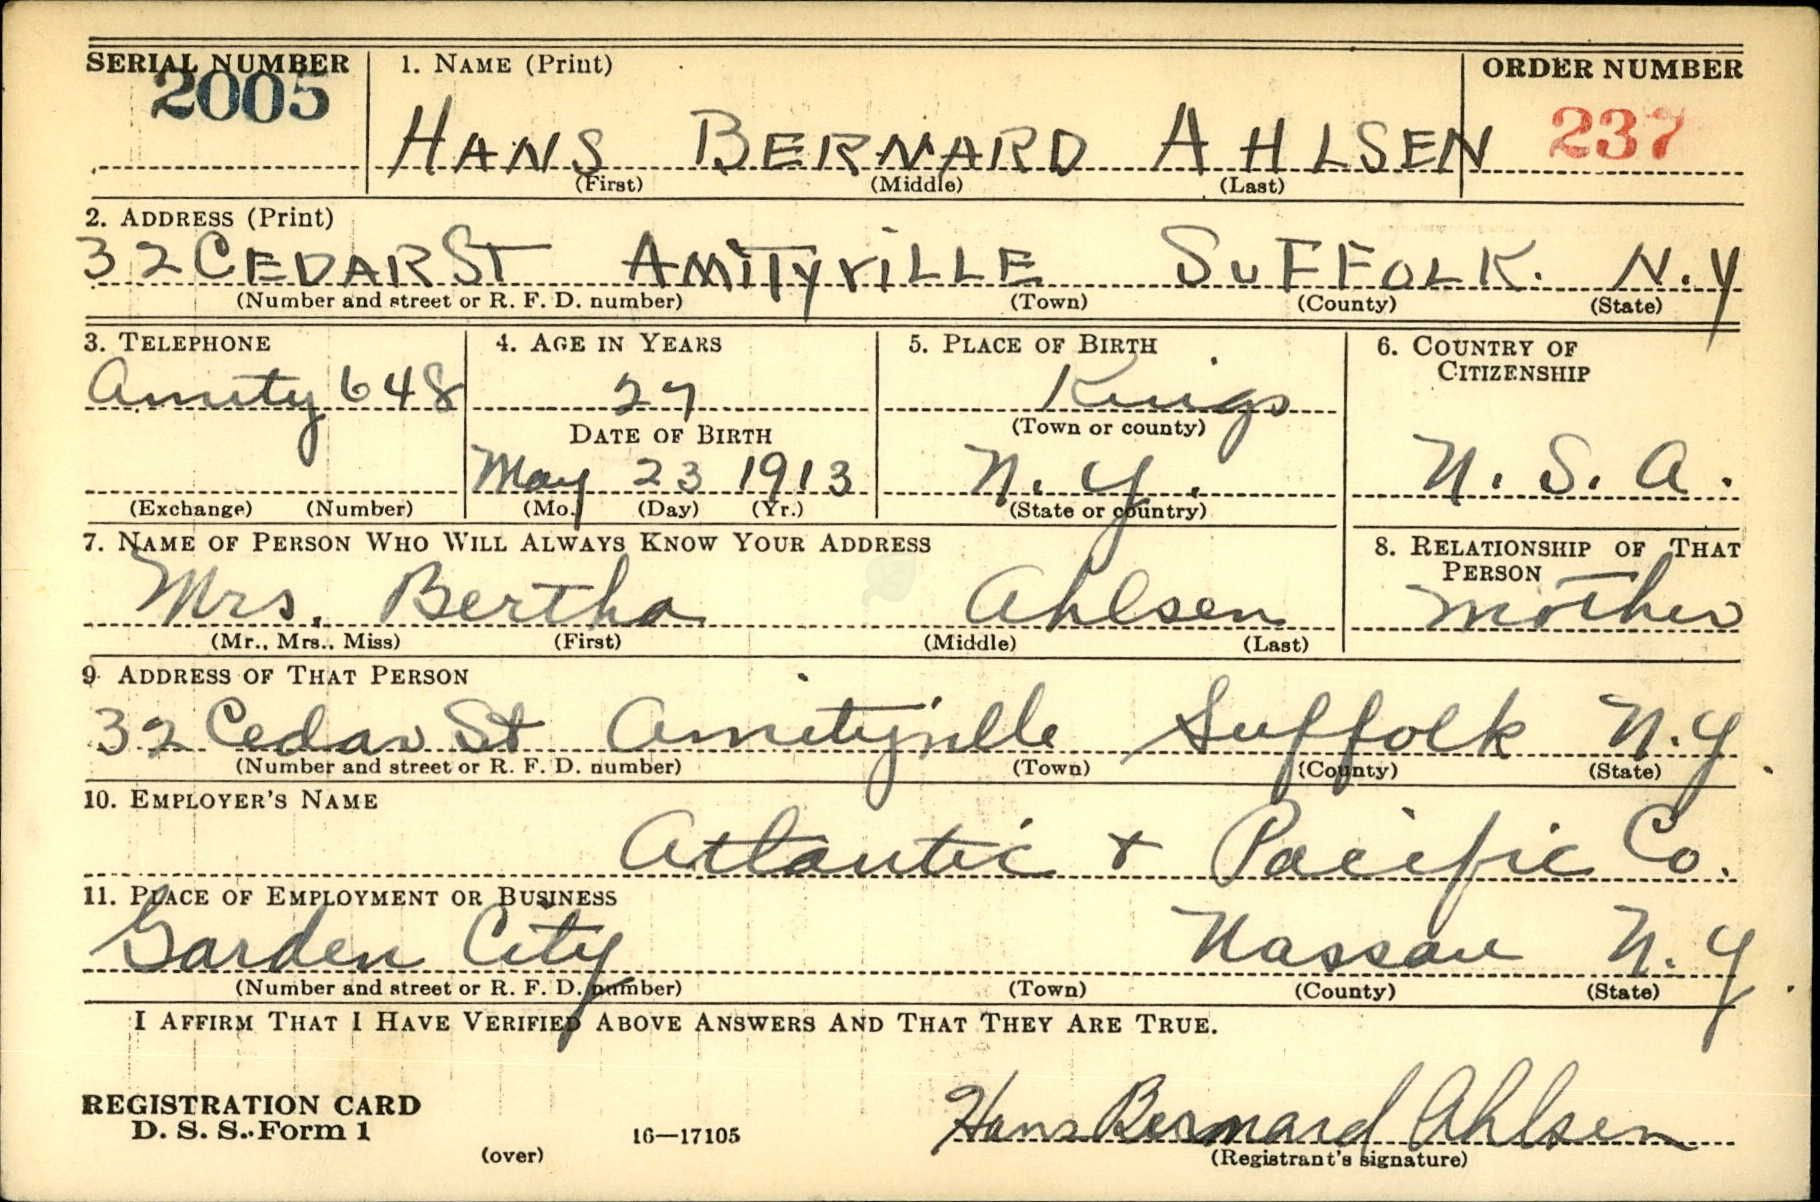 SERIAL NUMBER 1. NAME (Print) ORDER NUMBER
2005 HANS BERNARD AHLSEN 237
(First) (Middle) (Last)
2. ADDRESS (Print)
32 CEDAR ST AMITYVILLE SUFFOLK. N.Y
(Number and street or R. F. D. number) (Town) (County) (State)
3. TELEPHONE 4. AGE IN YEARS 5. PLACE OF BIRTH 6. COUNTRY OF CITIZENSHIP
Amity 648 27 Kings
DATE OF BIRTH (Town or county)
May 23 1913 N.Y. U.S.A.
(Exchange) (Number) (Mo.) (Day) (Yr.) (State or country)
7. NAME OF PERSON WHO WILL ALWAYS KNOW YOUR ADDRESS 8. RELATIONSHIP OF THAT PERSON
Mrs. Bertha Ahlsen Mother
(Mr., Mrs., Miss) (First) (Middle) (Last)
9. ADDRESS OF THAT PERSON
32 Cedar St Amityville Suffolk N.Y.
(Number and street or R. F. D. number) (Town) (County) (State)
10. EMPLOYER'S NAME
Atlantic + Pacific Co.
11. PLACE OF EMPLOYMENT OR BUSINESS
Garden City Nassau N.Y.
(Number and street or R. F. D. number) (Town) (County) (State)
I AFFIRM THAT I HAVE VERIFIED ABOVE ANSWERS AND THAT THEY ARE TRUE.
REGISTRATION CARD
D. S. S. Form 1 16—17105 Hans Bernard Ahlsen
(over) (Registrant's signature)